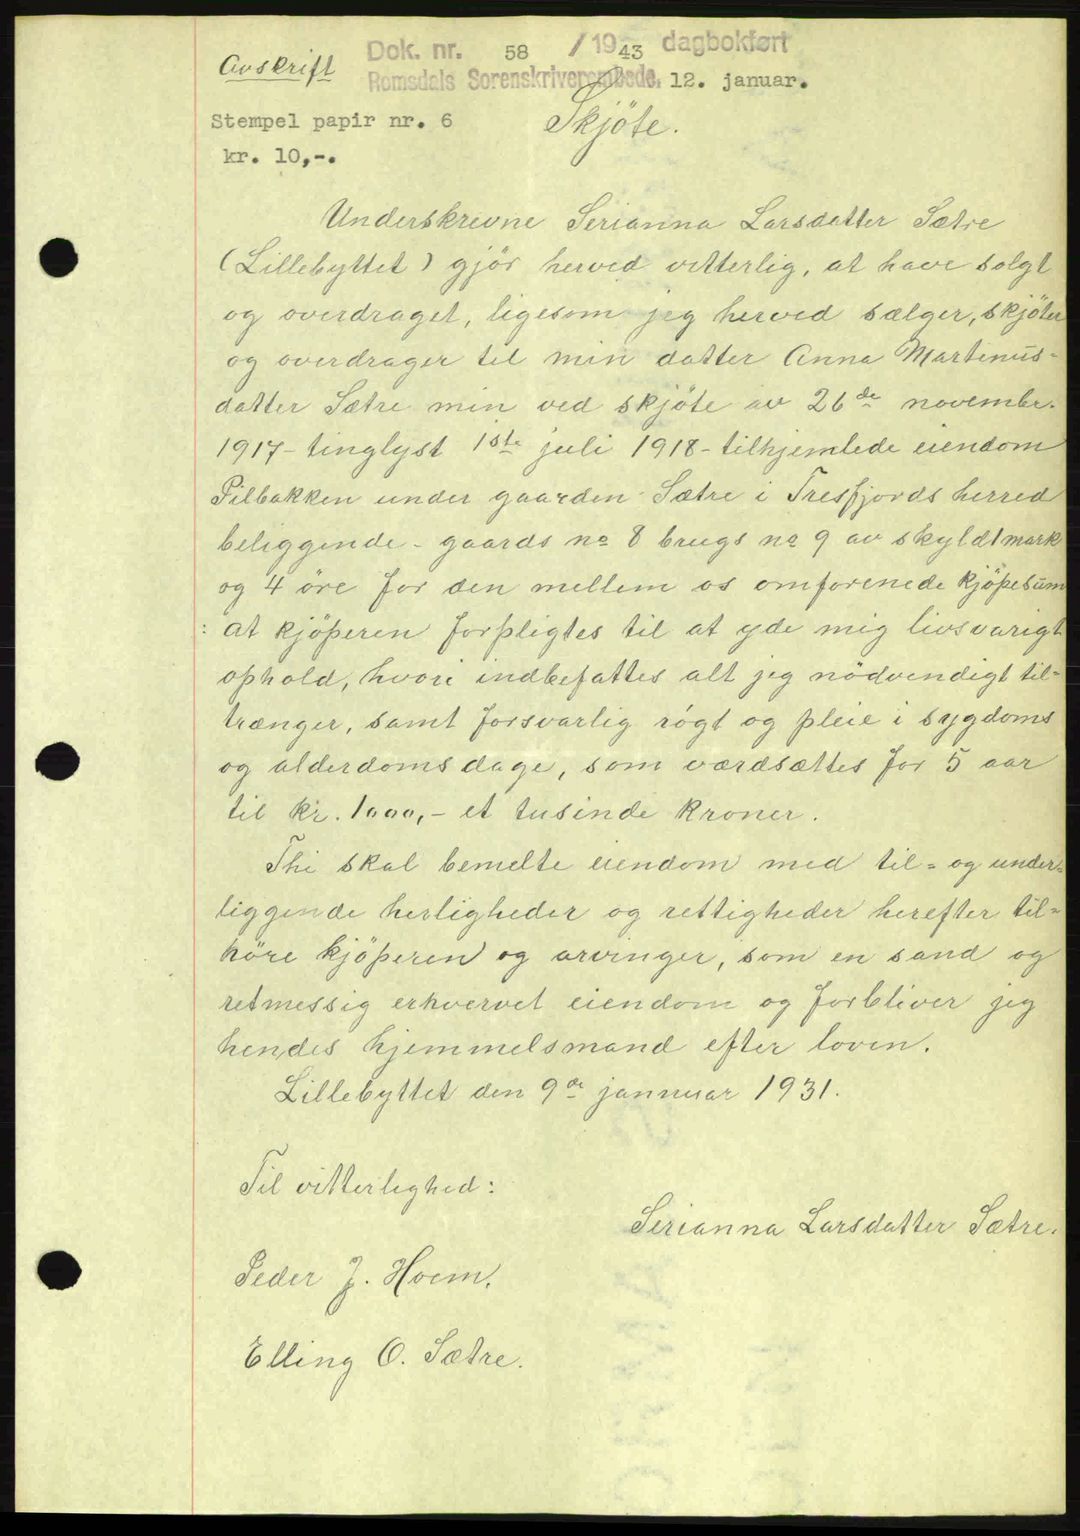 Avskrift Dok. nr. 58 / 1943 dagbokført
Romsdals Sorenskriverembede, 12. januar.
Stempel papir nr. 6 Skjöte.
kr. 10,-.
Underskrevne Serianna Larsdatter Sætre
(Lillebyttet) gjör herved vitterlig, at have solgt
og overdraget, ligesom jeg herved sælger, skjöter
og overdrager til min datter Anna Martinus-
datter Sætre min ved skjöte av 26de novembr.
1917 - tinglyst 1ste juli 1918 - tilhjemlede eiendom
Pilbakken under gaarden Sætre i Tresfjords herred
beliggende - gaards no 8 brugs no 9 av skyld 1 mark
og 4 öre for den mellem os omforenede kjöpesum
: at kjöperen forpligtes til at yde mig livsvarigt
ophold, hvori indbefattes alt jeg nödvendigt til=
trænger, samt forsvarlig røgt og pleie i sygdoms
og alderdoms dage, som værdsættes for 5 aar
til kr. 1000,- et tusinde kroner.
Thi skal bemelte eiendom med til= og under=
liggende herligheder og rettigheder herefter til=
höre kjöperen og arvinger, som en sand og
retmessig erhvervet eiendom og forbliver jeg
hendes hjemmelsmand efter loven.
Lillebyttet den 9de jannuar 1931.
Til vitterlighed:
Serianna Larsdatter Sætre.
Peder J. Hoem.
Elling O. Sætre.